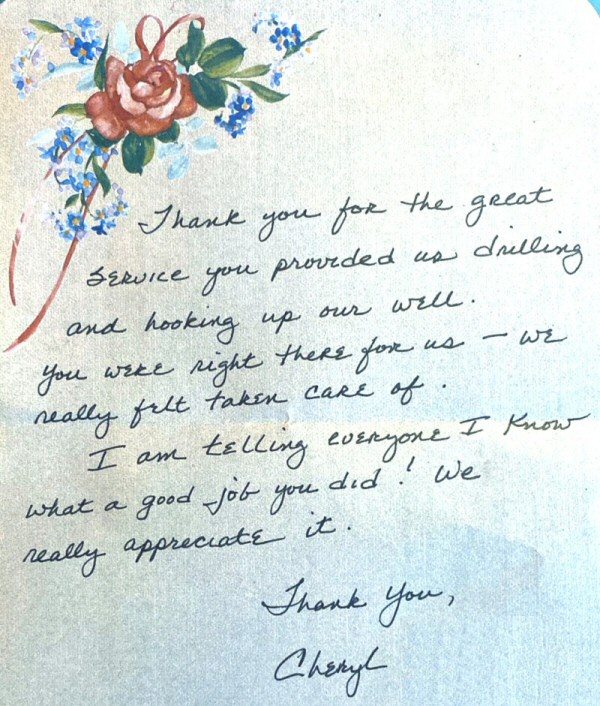 Thank you for the great
service you provided us drilling
and hooking up our well.
You were right there for us – we
really felt taken care of.
I am telling everyone I know
what a good job you did! We
really appreciate it.
Thank You,
Cheryl